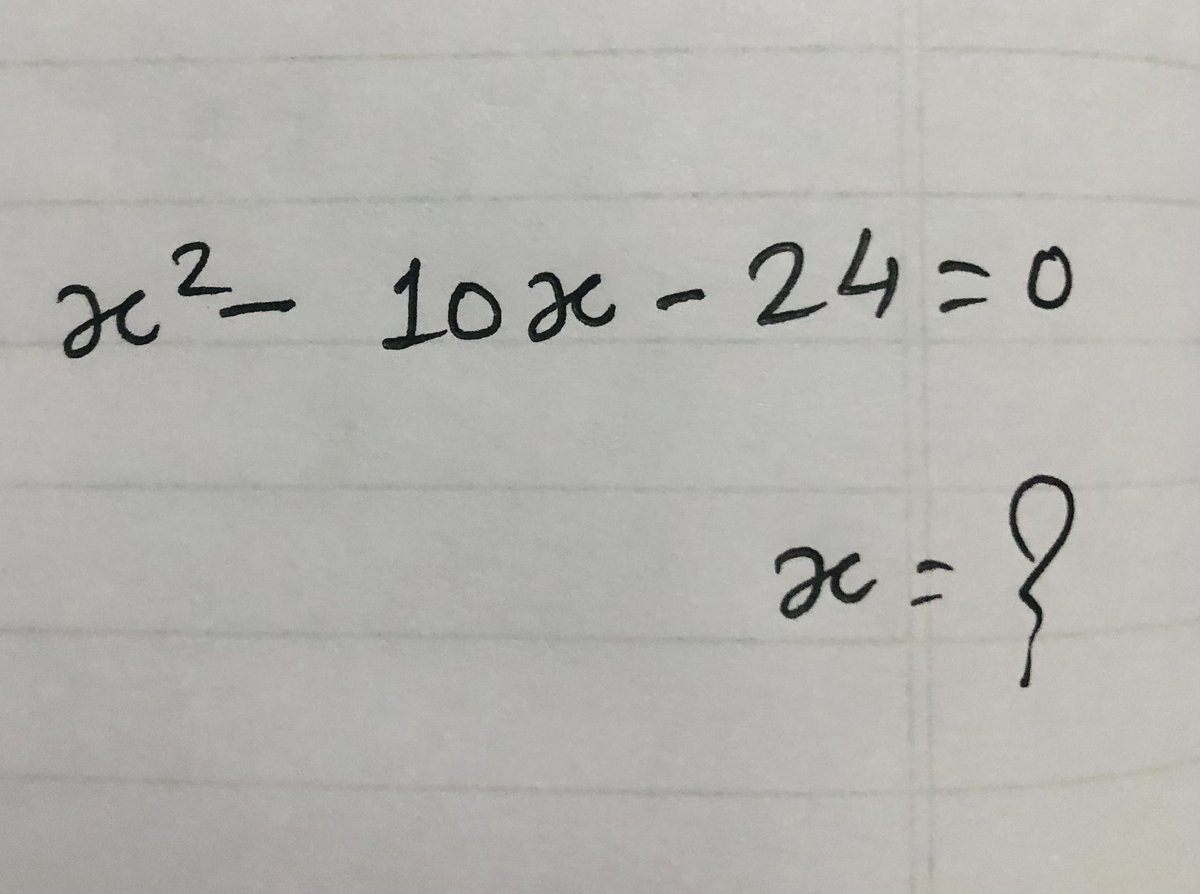 x² - 10x - 24 = 0
x = ?